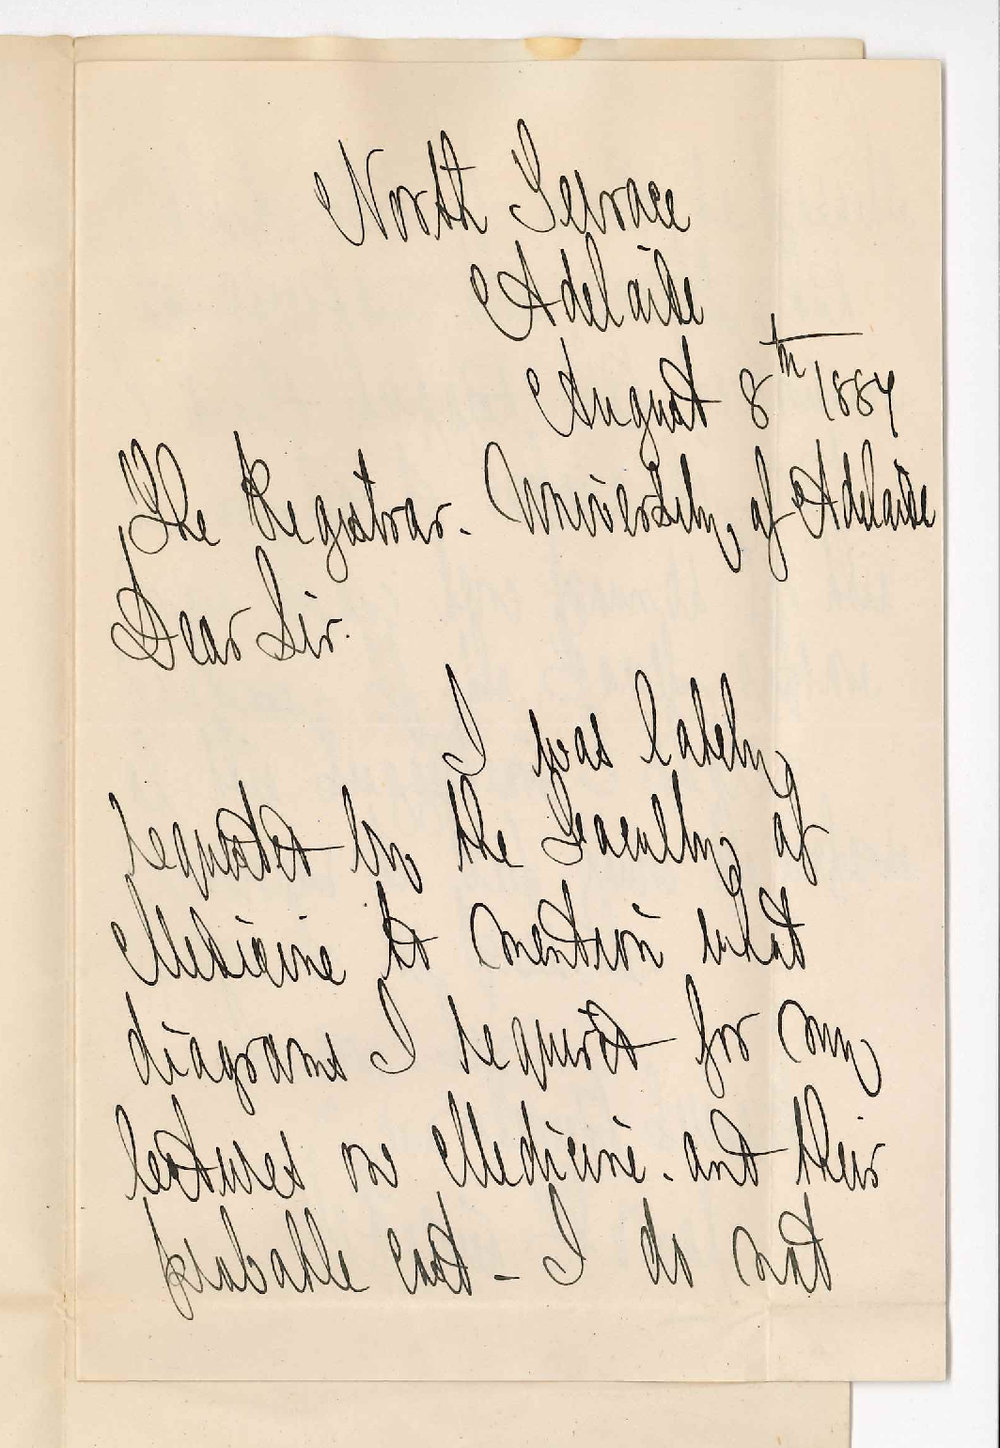 North Terrace
Adelaide
August 8th 1884
The Registrar. University of Adelaide
Dear Sir.
I was lately
requested by the Faculty of
Medicine to mention what
diagrams I required for my
lectures on Medicine. and their
probable cost - I do not